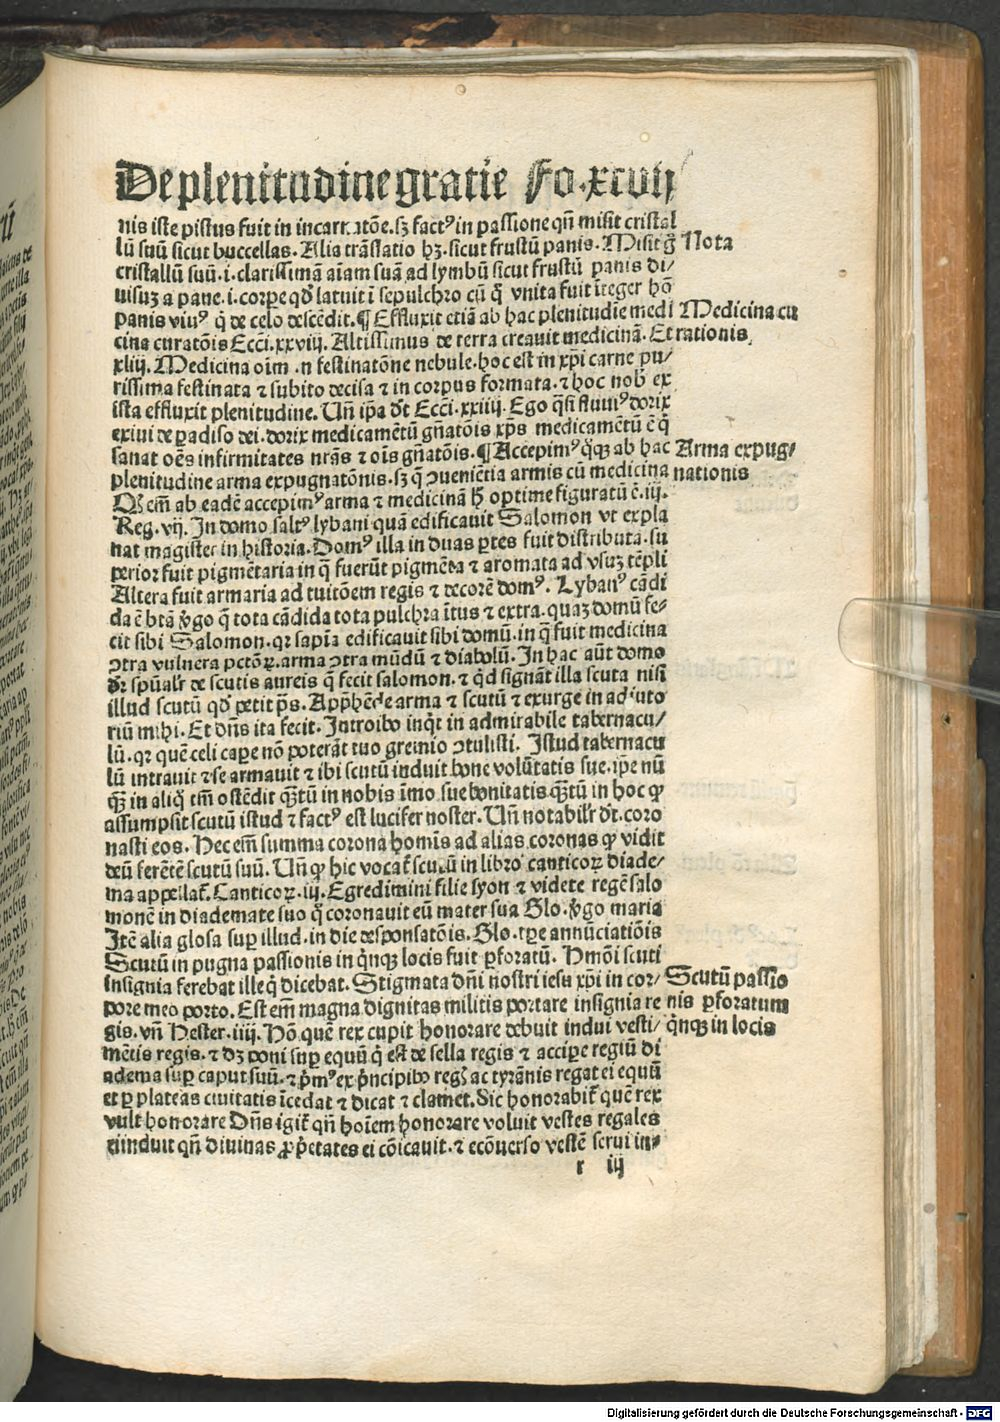 De plenitudine gratie Fo.xcvij
nis iste pistus fuit in incarnatõe. sꝫ factꝰ in passione qñ misit cristal
lũ suũ sicut buccellas. Alia trãslatio hꝫ. sicut frustũ panis. Misit g̃ Nota
cristallũ suũ .i. clarissimã aĩam suã ad lymbũ sicut frustũ panis di/
uisuꝫ a pane .i. corpe qd̃ latuit ĩ sepulchro cũ q̃ vnita fuit ĩteger hõ
panis viuꝰ q̃ de celo descẽdit. ¶ Effluxit etiã ab hac plenitudĩe medi Medicina cu
cina curatõis Ecc̃i.xxviij. Altissimus de terra creauit medicinã. Et rationis.
xliij. Medicina oĩm in festinatõne nebule. hoc est in xp̃i carne pu/
rissima festinata ⁊ subito decisa ⁊ in corpus formata. ⁊ hoc nob̃ ex
ista effluxit plenitudine. Uñ ip̃a dr̃t Ecc̃i.xxiiij. Ego q̃si fluuiꝰ dorix
exiui de ꝑadiso dei. dorix medicamẽtũ gñatõis xp̃s medicamẽtũ ẽ q̃
sanat oẽs infirmitates nr̃as ⁊ oĩs gñatõis. ¶ Accepimꝰ q̃qꝫ ab hac Arma expug/
plenitudine arma expugnatõnis. sꝫ q̃ ↄueniẽtia armis cũ medicina nationis
Q̃ em̃ ab eadẽ accepimꝰ arma ⁊ medicinã h̃ optime figuratũ ẽ .iij.
Reg. vij. In domo saltꝰ lybani quã edificauit Salomon vt expla
nat magister in historia. Domꝰ illa in duas ꝑtes fuit distributa. su
perior fuit pigmẽtaria in q̃ fuerũt pigmẽta ⁊ aromata ad vsuꝫ tẽpli
Altera fuit armaria ad tuitõem regis ⁊ decorẽ domꝰ. Lybanꝰ cãdi
da ẽ btã ṽgo q̃ tota cãdida tota pulchra ĩtus ⁊ extra. quaꝫ domũ fe-
cit sibi Salomon. qꝛ sapĩa edificauit sibi domũ. in q̃ fuit medicina
ↄtra vulnera pctõꝝ. arma ↄtra mũdũ ⁊ diabolũ. In hac aũt domo
dr̃ sp̃ualr̃ de scutis aureis q̃ fecit salomon. ⁊ q̃d signãt illa scuta nisi
illud scutũ qd̃ petit p̃s. App̃hẽde arma ⁊ scutũ ⁊ exurge in adiuto
riũ mihi. Et dñs ita fecit. Introibo inq̃t in admirabile tabernacu/
lũ. qꝛ quẽ celi capere nõ poterãt tuo gremio ↄtulisti. Istud tabernacu
lũ intrauit ⁊ se armauit ⁊ ibi scutũ induit bone volũtatis sue. ip̃e nũ
q̃ꝫ in aliq̃ tm̃ ostẽdit q̃ꝫtũ in nobis ĩmo sue bonitatis q̃ꝫtũ in hoc ꝙ
assumpsit scutũ istud ⁊ factꝰ est lucifer noster. Uñ notabilr̃ dr̃t. coro
nasti eos. Hec em̃ summa corona homĩs ad alias coronas ꝙ vidit
deũ ferẽtẽ scutũ suũ. Uñ ꝙ hic vocat̃ scutũ in libro canticoꝝ diade-
ma appellat̃. Canticoꝝ .iij. Egredimini filie syon ⁊ videte regẽ salo
monẽ in diademate suo q̃ coronauit eũ mater sua Glo. ṽgo maria
Itẽ alia glosa suꝑ illud. in die desponsatõis. Glo. tꝑe annũciatiõis
Scutũ in pugna passionis in q̃nqꝫ locis fuit ꝑforatũ. Hmõi scuti
insignia ferebat ille q̃ dicebat. Stigmata dñi nostri iesu xp̃i in cor/ Scutũ passio
pore meo porto. Est em̃ magna dignitas militis portare insignia re nis ꝑforatum
gis. vñ Hester. iiij. Hõ quẽ rex cupit honorare debuit indui vesti/ q̃nqꝫ in locis
mẽtis regis. ⁊ dꝫ poni suꝑ equũ q̃ est de sella regis ⁊ accipe regiũ di
adema suꝑ caput suũ. ⁊ p̃mꝰ ex p̃ncipibꝰ regꝭ ac tyrãnis regat ei equũ
et ꝑ plateas ciuitatis ĩcedat ⁊ dicat ⁊ clamet. Sic honorabit̃ quẽ rex
vult honorare Dñs igit̃ qñ hoĩem honorare voluit vestes regales
ei induit qñ diuinas ꝓp̃etates ei cõicauit. ⁊ ecõuerso vestẽ serui in-
r iij
Digitalisierung gefördert durch die Deutsche Forschungsgemeinschaft - DFG